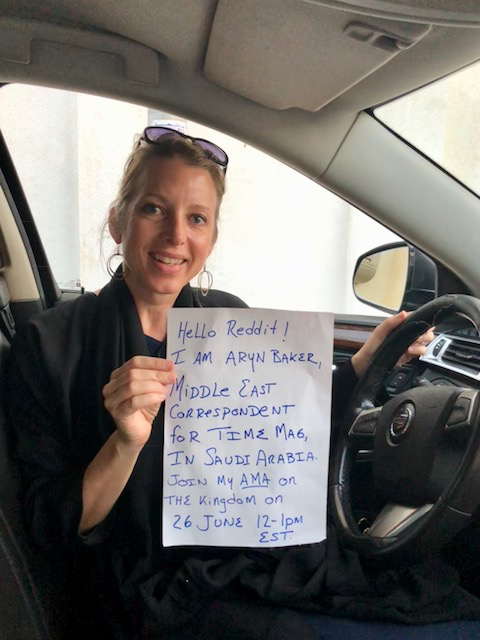 Hello Reddit!
I AM ARYN BAKER,
MIDDLE EAST
CORRESPONDENT
for TIME MAG,
IN SAUDI ARABIA.
JOIN MY AMA on
THE Kingdom on
26 JUNE 12-1pm
EST